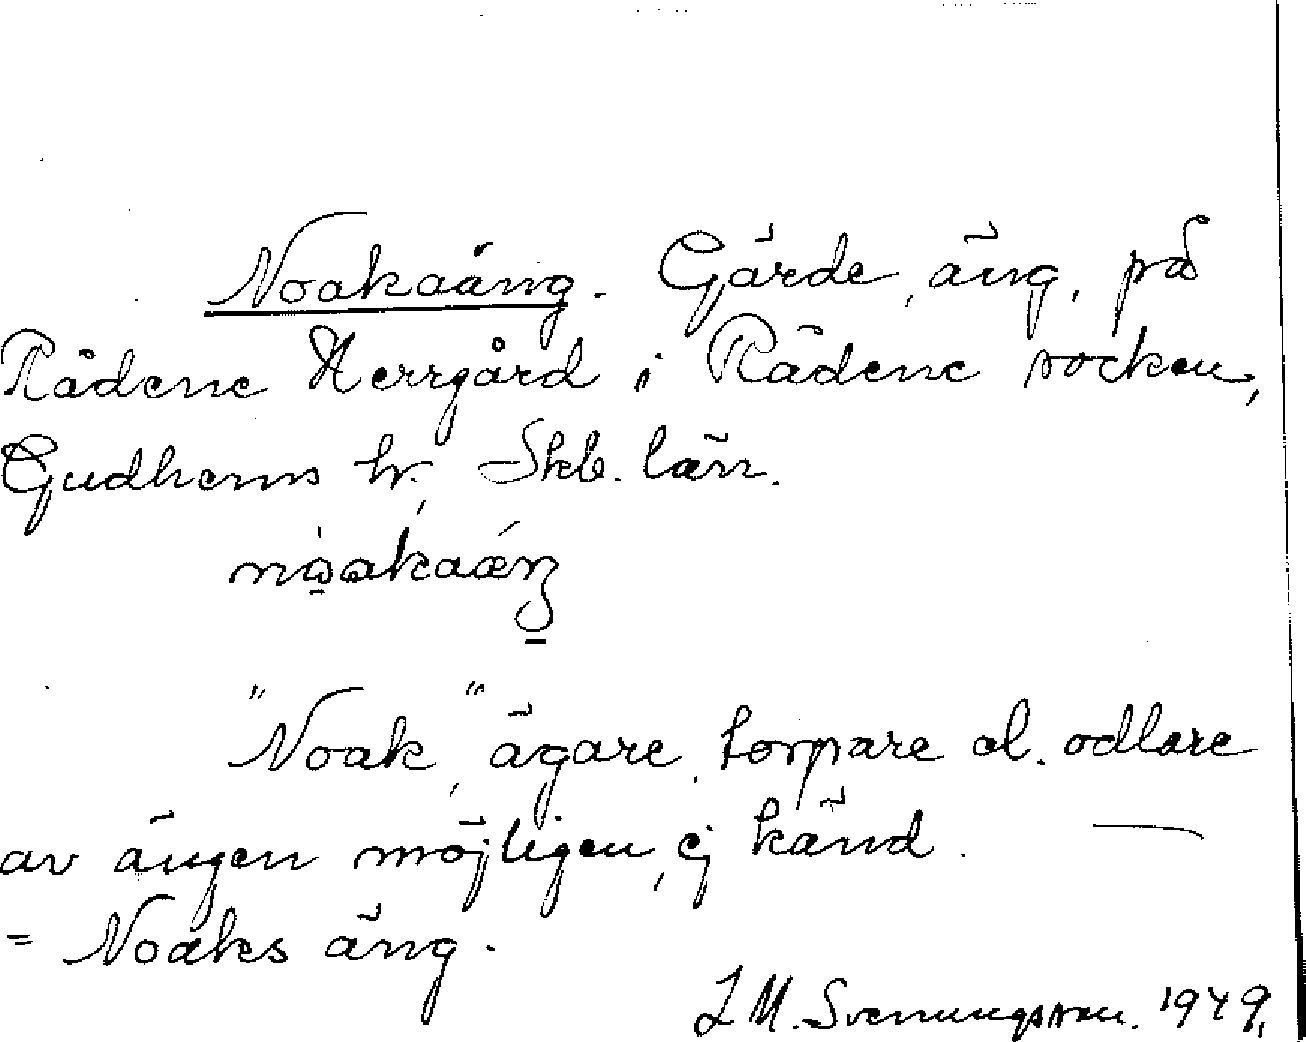 Noakaäng. Gärde, äng, på
Rådene Herrgård i Rådene socken,
Gudhems hr, Skb. län.
"Noak", ägare, torpare el. odlare
av ängen möjligen, ej känd. —
= Noaks äng.
J M. Svenungsson. 1949.